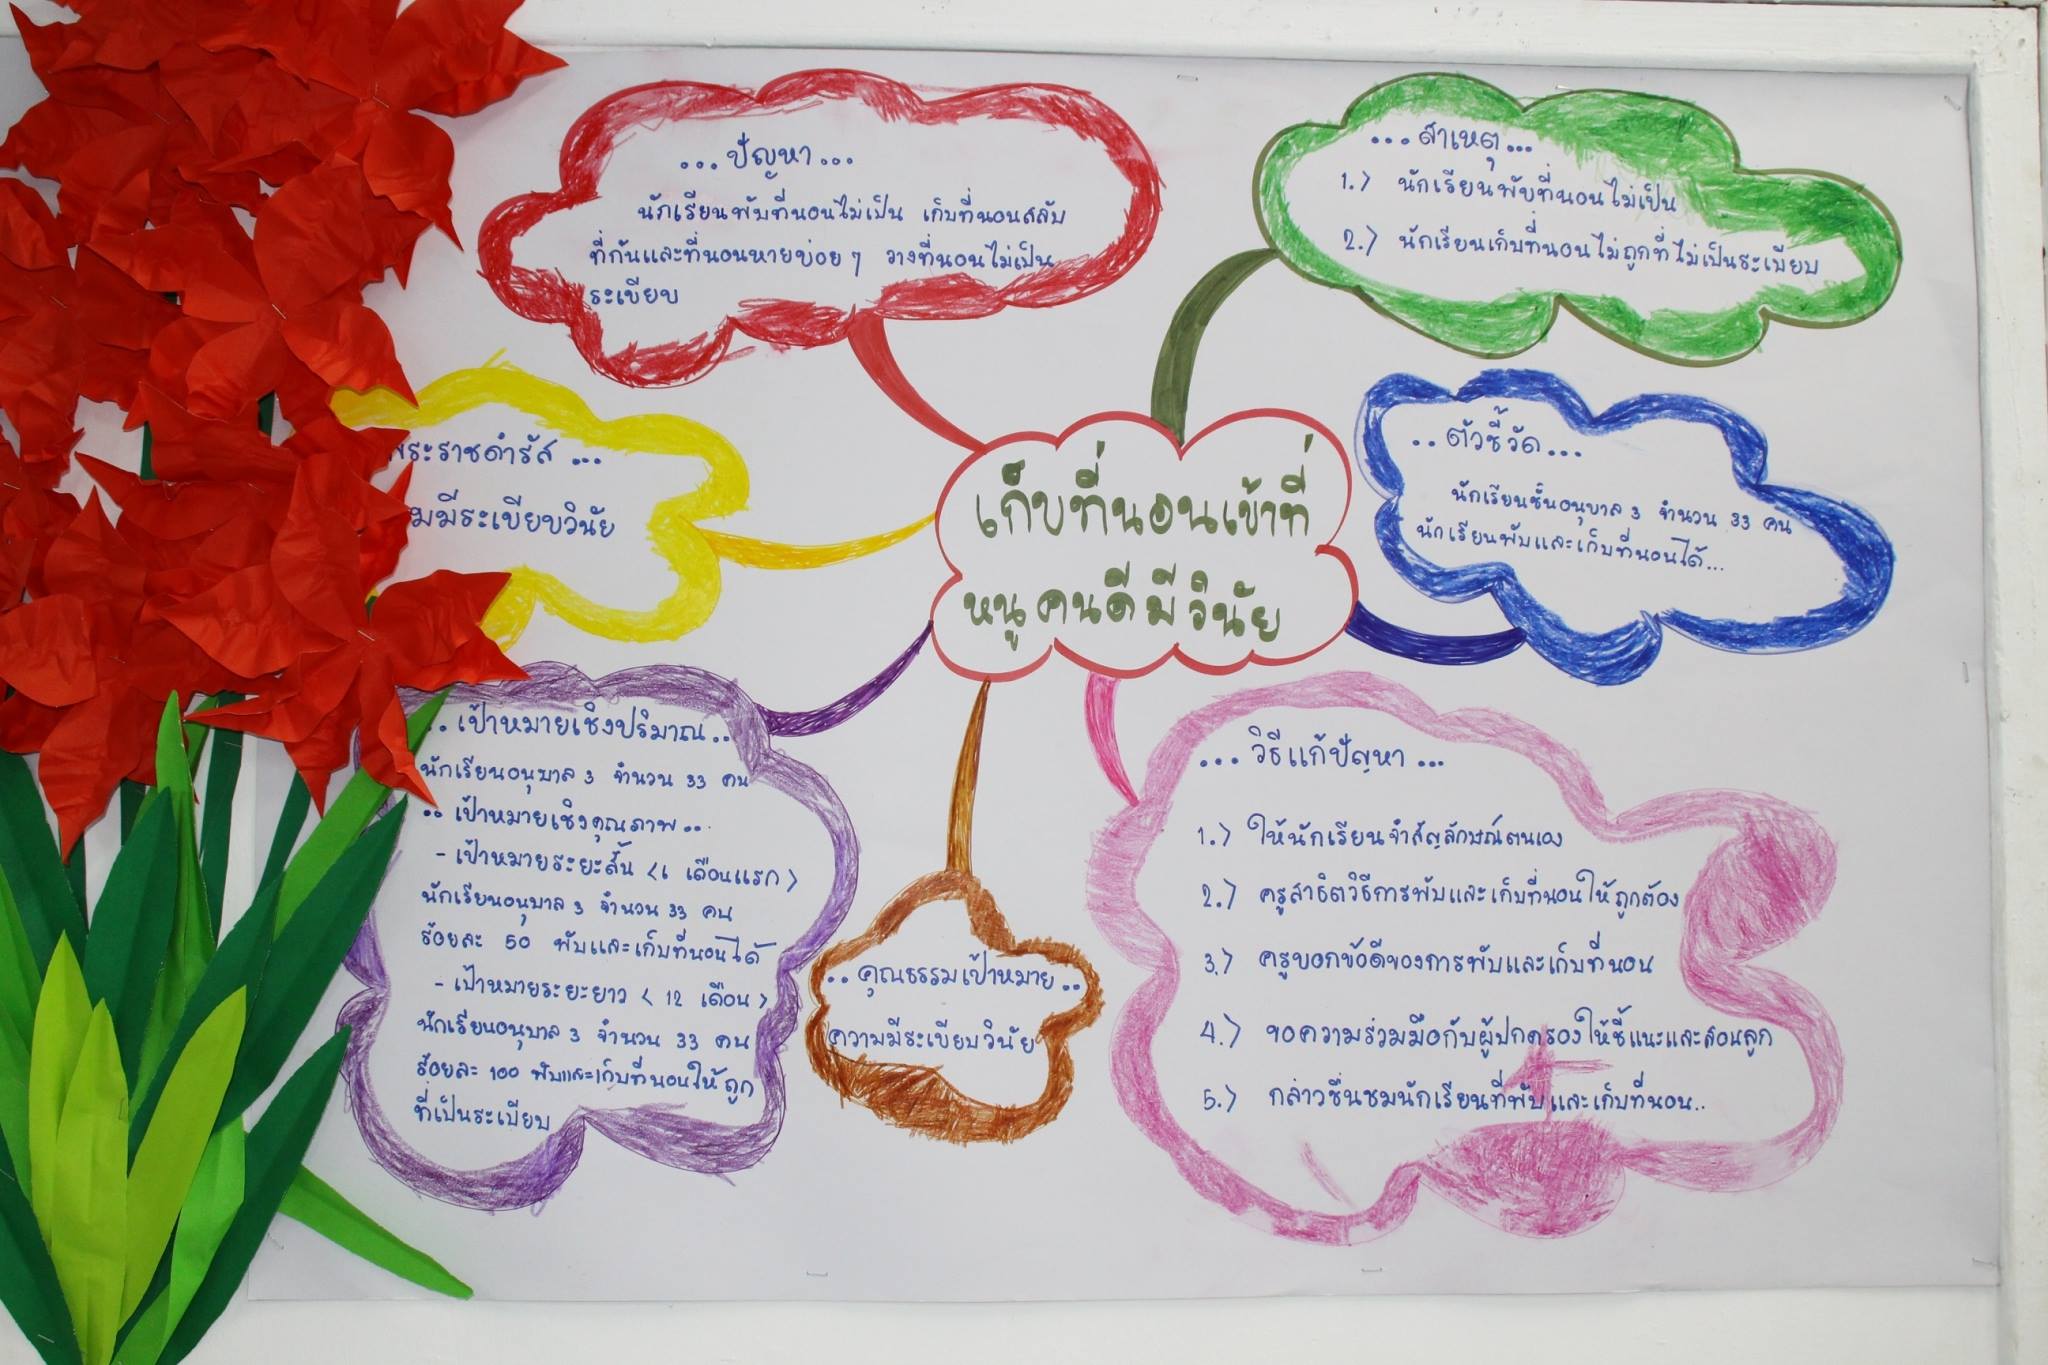 ...ปัญหา...
นักเรียนพับที่นอนไม่เป็น เก็บที่นอนสลับ
ที่กันและที่นอนหายบ่อยๆ วางที่นอนไม่เป็น
ระเบียบ
...สาเหตุ...
1.> นักเรียนพับที่นอนไม่เป็น
2.> นักเรียนเก็บที่นอนไม่ถูกที่ไม่เป็นระเบียบ
พระราชดำรัส ...
มมีระเบียบวินัย
เก็บที่นอนเข้าที่
หนูคนดีมีวินัย
..ตัวชี้วัด...
นักเรียนชั้นอนุบาล 3 จำนวน 33 คน
นักเรียนพับและเก็บที่นอนได้...
..เป้าหมายเชิงปริมาณ..
นักเรียนอนุบาล 3 จำนวน 33 คน
..เป้าหมายเชิงคุณภาพ..
- เป้าหมายระยะสั้น < เดือนแรก >
นักเรียนอนุบาล 3 จำนวน 33 คน
ร้อยละ 50 พับและเก็บที่นอนได้
- เป้าหมายระยะยาว < 12 เดือน >
นักเรียนอนุบาล 3 จำนวน 33 คน
ร้อยละ 100 พับและเก็บที่นอนให้ถูก
ที่เป็นระเบียบ
..คุณธรรมเป้าหมาย..
ความมีระเบียบวินัย
...วิธีแก้ปัญหา...
1.> ให้นักเรียนจำสัญลักษณ์ตนเอง
2.> ครูสาธิตวิธีการพับและเก็บที่นอนให้ถูกต้อง
3.> ครูบอกข้อดีของการพับและเก็บที่นอน
4.> ขอความร่วมมือกับผู้ปกครองให้ชี้แนะและสอนลูก
5.> กล่าวชื่นชมนักเรียนที่พับและเก็บที่นอน..